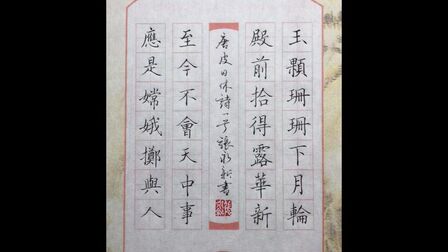 玉顆珊珊下月輪
殿前拾得露華新
至今不會天中事
應是嫦娥擲與人
唐皮日休詩一首張永新書